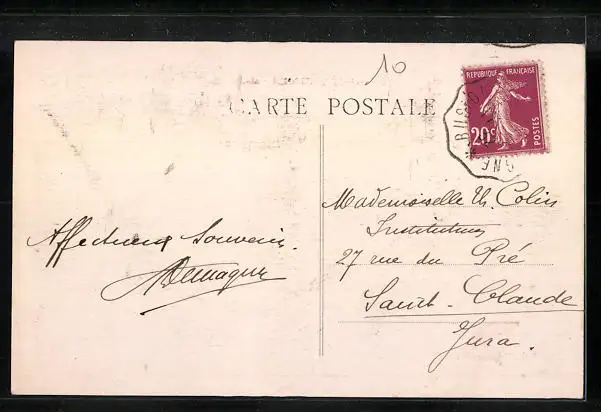 10
CARTE POSTALE
REPUBLIQUE FRANÇAISE
20c
POSTES
Affectueux Souvenir.
Mademoiselle Th. Colin
Institutrice
27 rue du Pré
Saint-Claude
Jura.